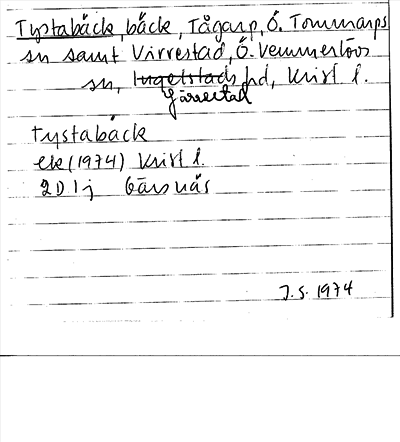 Tystabäck, bäck, Tågarp, Ö. Tommarps
sn samt Virrestad, Ö. Vemmerlövs
sn, Ingelstads hd, Krist l.
Järrestad
Tystabäck
ek (1974) Krist l.
2D1j Gärsnäs
J.S. 1974